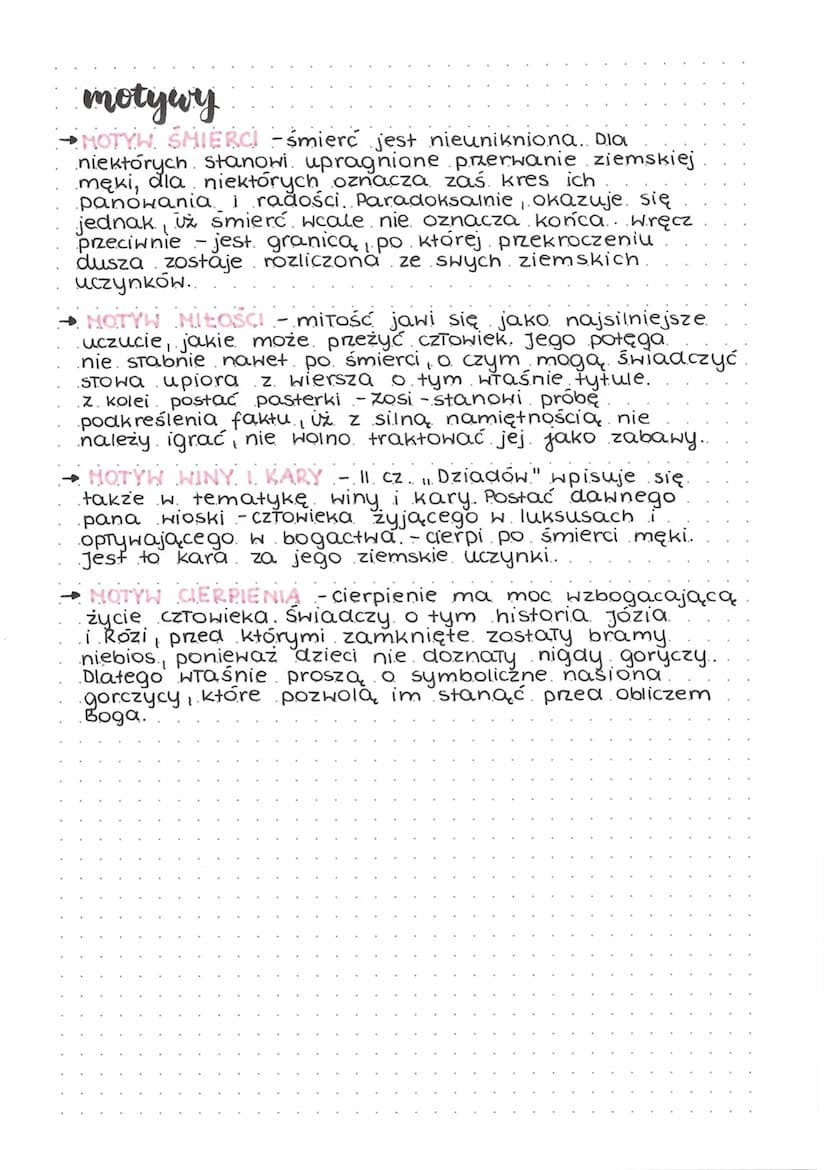 motywy
→ MOTYW ŚMIERCI - śmierć jest nieunikniona. Dla
niektórych stanowi upragnione przerwanie ziemskiej
męki, dla niektórych oznacza zaś kres ich
panowania i radości. Paradoksalnie, okazuje się
jednak, iż śmierć wcale nie oznacza końca. Wręcz
przeciwnie - jest granicą, po której przekroczeniu
dusza zostaje rozliczona ze swych ziemskich
uczynków.
→ MOTYW MIŁOŚCI - miłość jawi się jako najsilniejsze
uczucie, jakie może przeżyć człowiek. Jego potęga
nie słabnie nawet po śmierci, o czym mogą świadczyć
słowa upiora z wiersza o tym właśnie tytule.
Z kolei postać pasterki - Zosi - stanowi próbę
podkreślenia faktu, iż z silną namiętnością nie
należy igrać, nie wolno traktować jej jako zabawy.
→ MOTYW WINY I KARY - II cz. „Dziadów" wpisuje się
także w tematykę winy i kary. Postać dawnego
pana wioski - człowieka żyjącego w luksusach i
opływającego w bogactwa - cierpi po śmierci męki.
Jest to kara za jego ziemskie uczynki.
→ MOTYW CIERPIENIA - cierpienie ma moc wzbogacającą
życie człowieka. Świadczy o tym historia Józia
i Rózi, przed którymi zamknięte zostały bramy
niebios, ponieważ dzieci nie doznały nigdy goryczy.
Dlatego właśnie proszą o symboliczne nasiona
gorczycy, które pozwolą im stanąć przed obliczem
Boga.